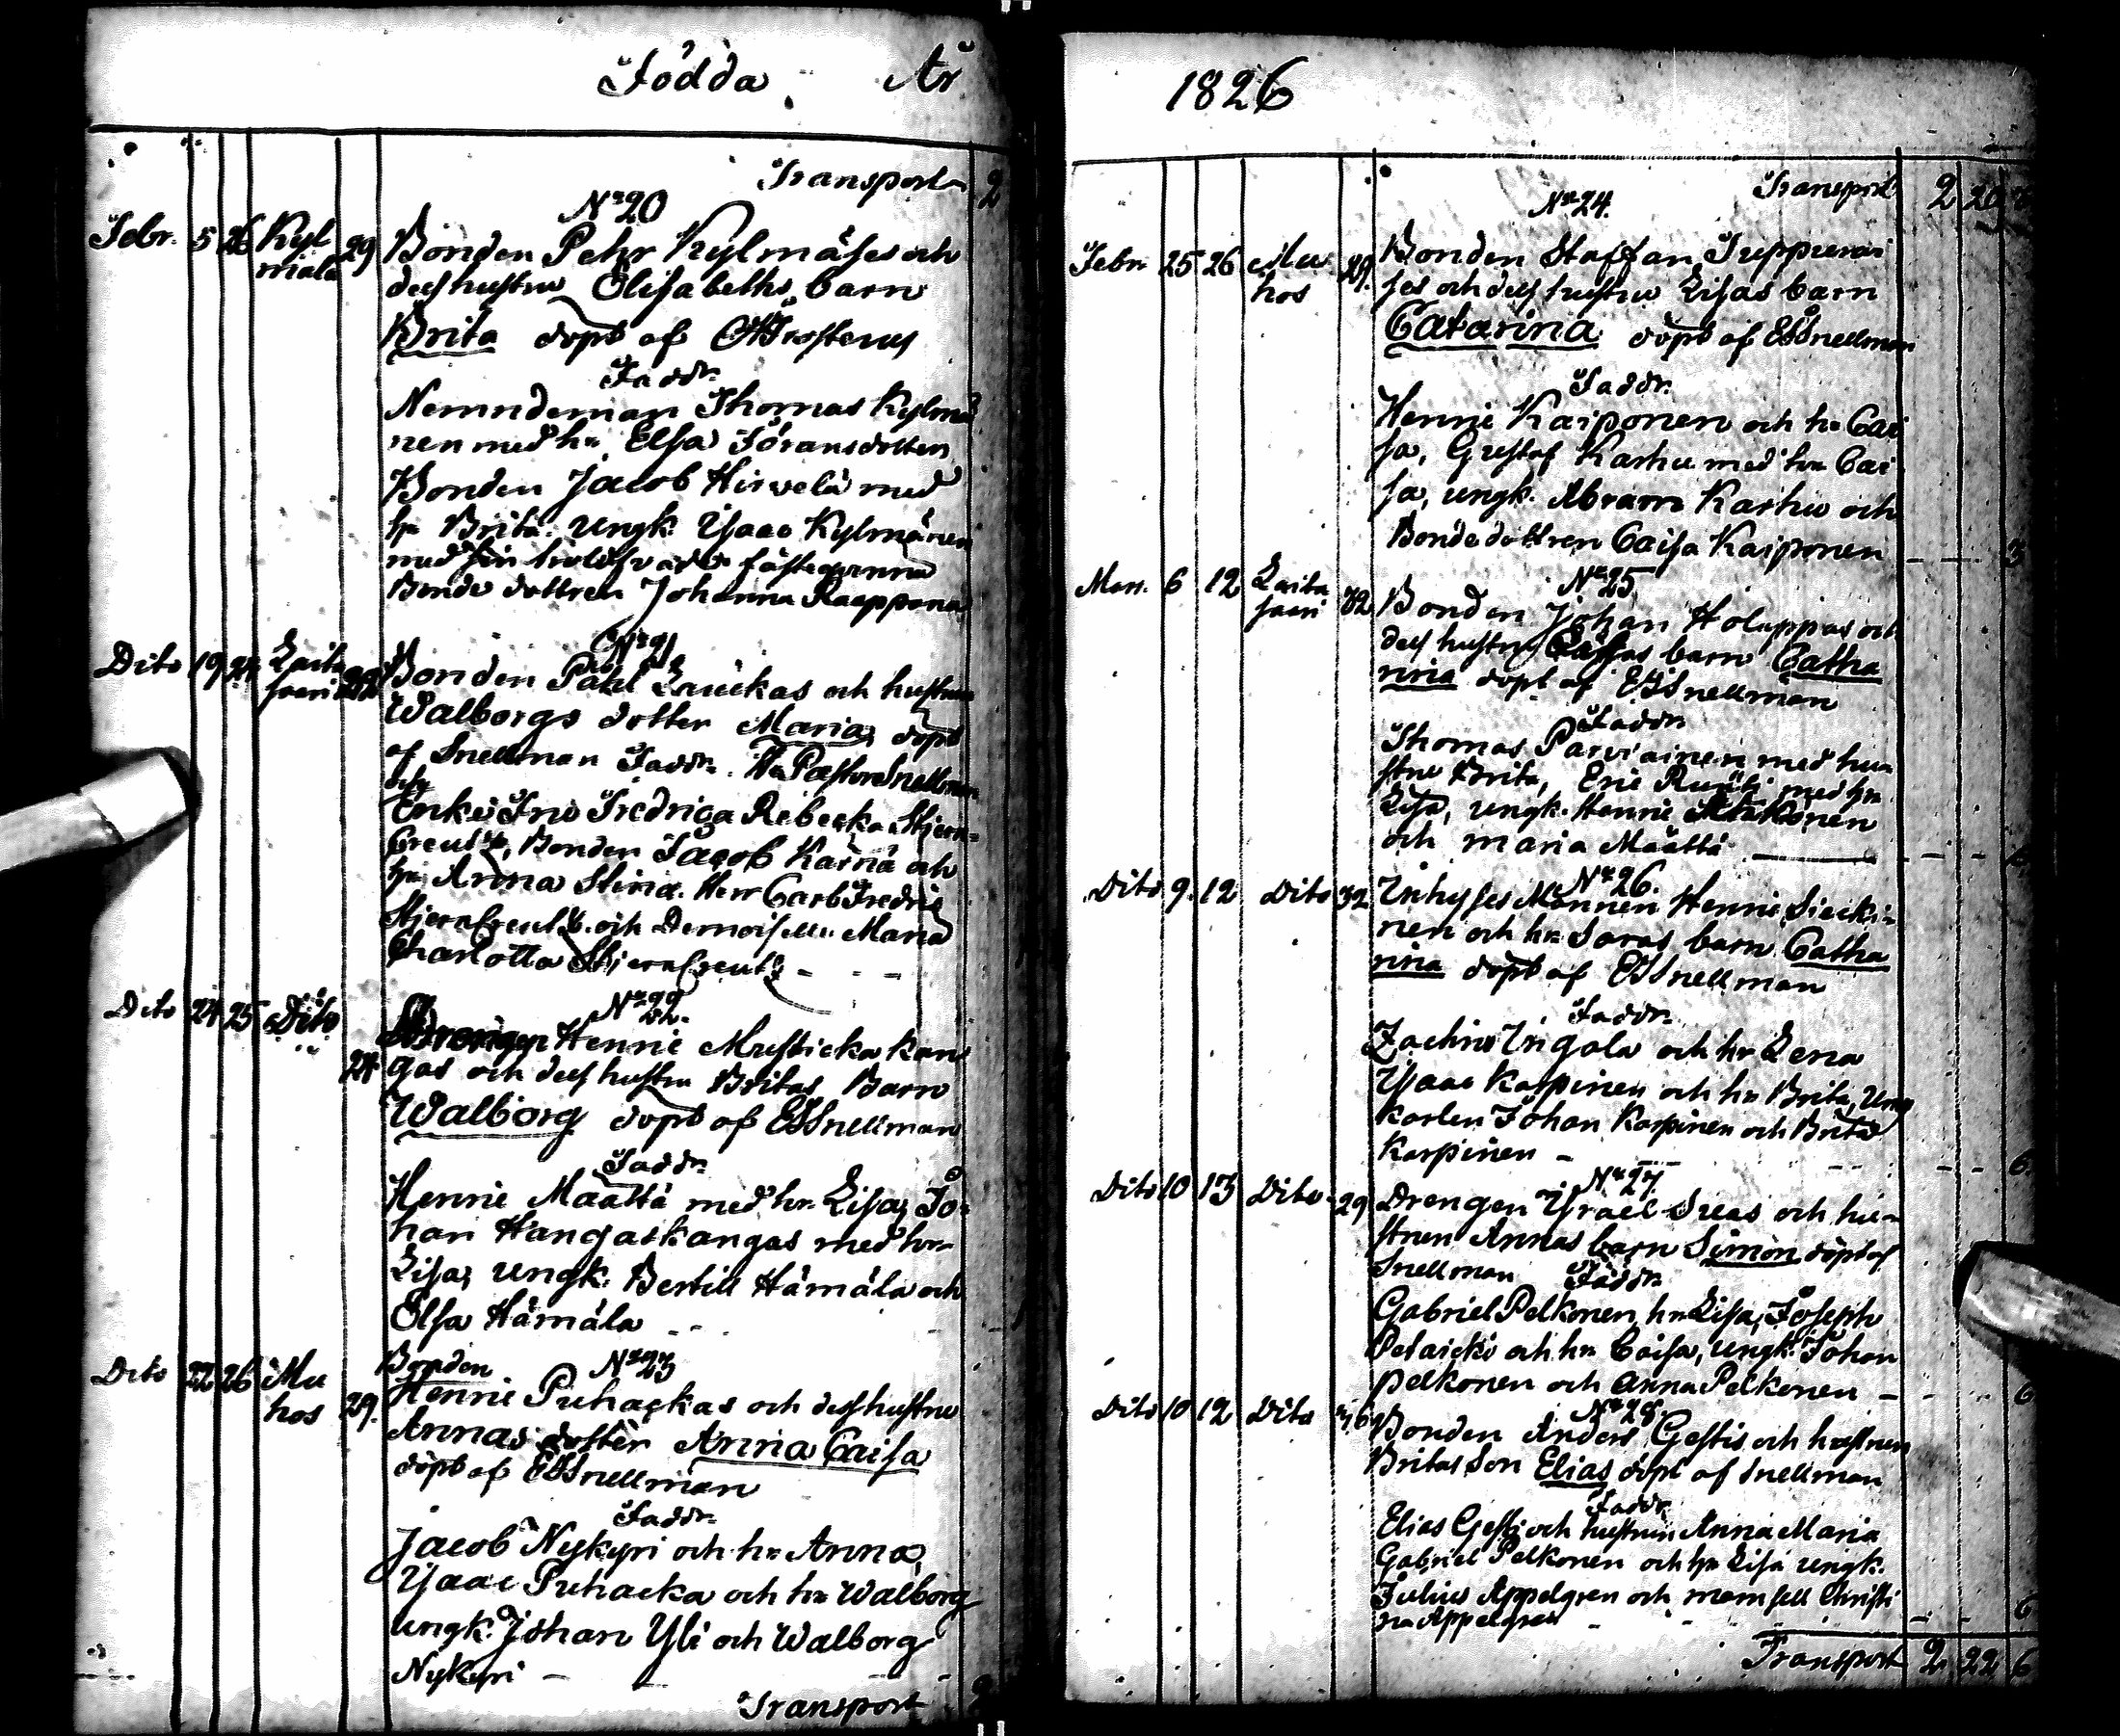 Födda År
Transport 2
N:20
Febr. 5 26 Kyl 29 Bonden Pehr Kylmäses och
miala dess hustru Elisabeths barn
Brita döpt af
Faddr.
Nemndeman Thomas Kylmä
nen med hu Elsa Göransdotter
Bonden Jacob Hirvelä med
hu Brita. Ungk. Isaac Kylmänen
med sin fästeqvinna
Bonde dottren Johanna
N:21
Dito 19 24 Laita Bonden Påhl Lauckas och hustru
saari 22 Walborgs dotter Maria, döpt
af Snellman Faddr. Hr Pastor Snellman
och
Enke Fru Fredrica Rebecka Stjern-
Creutz, Bonden Jacob Kärnä och
hu Anna Stina. Herr Carl Fredric
StjernCreutz och Demoiselle Maria
Charlotta StjernCreutz - - -
N:22.
Dito 24 25 Dito Drengen Henric Mustickakan
28 gas och dess hustru Britas Barn
Walborg döpt af EJSnellman
Faddr.
Henric Määttä med hu Lisa, Jo-
han Hangaskangas med hu
Lisa, ungk. Bertill Hämälä och
Elsa Hämälä
Bonden N:23
Dito 22 26 Mu Henric Puhackas och dess hustru
hos 29. Annas dotter Anna Caisa
döpt af EJSnellman
Faddr.
Jacob Nykyri och hu Anna,
Isaac Puhacka och hu Walborg
Ungk. Johan Yli och Walborg
Nykyri -
Transport 2
1826
N:24. Transport 2 20
Febr 25 26 Mu 29. Bonden Staffan Tuppurai
hos ses och dess hustru Lisas barn
Catarina döpt af EJSnellman
Faddr.
Henric Kaiponen och hu Cai
sa, Gustaf Karhu med hu Cai
sa, ungk. Abram Karhu och
Bonde dottren Caisa Kaiponen 3
N:25
Mars. 6 12 Laita 32 Bonden Johan Holappas och
saari dess hustru Caisas barn Catha
rina döpt af EJSnellman
Faddr.
Thomas Parviainen med hu
stru Brita, Eric med hu
Lisa, ungk. Henric
och Maria Määttä
N:26.
Dito 9. 12 Dito 32 Inhyses Mannen Henric Siecki-
nen och hu Saras barn Catha
rina döpt af EJSnellman
Faddr.
Zachris Ingala och hu Lena
Isaac Karpinen och hu Brita, Ung
karlen Johan Karpinen och Brita
Karpinen - 6
N:27
Dito 10 13 Dito 29 Drengen Israel Sues och hu-
strun Annas barn Simon döpt af
Snellman Faddr.
Gabriel Pelkonen, hu Lisa, Joseph
Petaicko och hu Caisa, ungk. Johan
Pelkonen och Anna Pelkonen - 6
N:28
Dito 10 12 Dito Bonden Anders Gestis och hustrun
Britas Son Elias döpt af Snellman
Faddr.
Elias Gesti och hustrun Anna Maria
Gabriel Pelkonen och hu Lisa ungk.
Julius Appelgren och mamsell Christi
na Appelgren 6
Transport 2 22 6